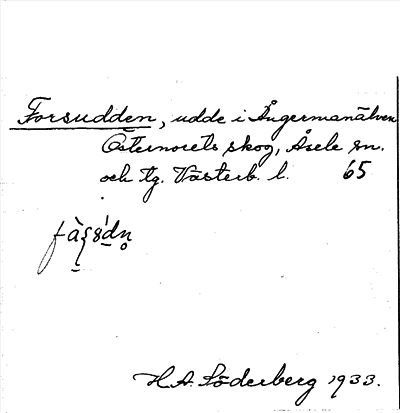 Forsudden, udde i Ångermanälven
Östernorets skog, Åsele sn.
och tg. Västerb. l. 65
H.A. Söderberg 1933.